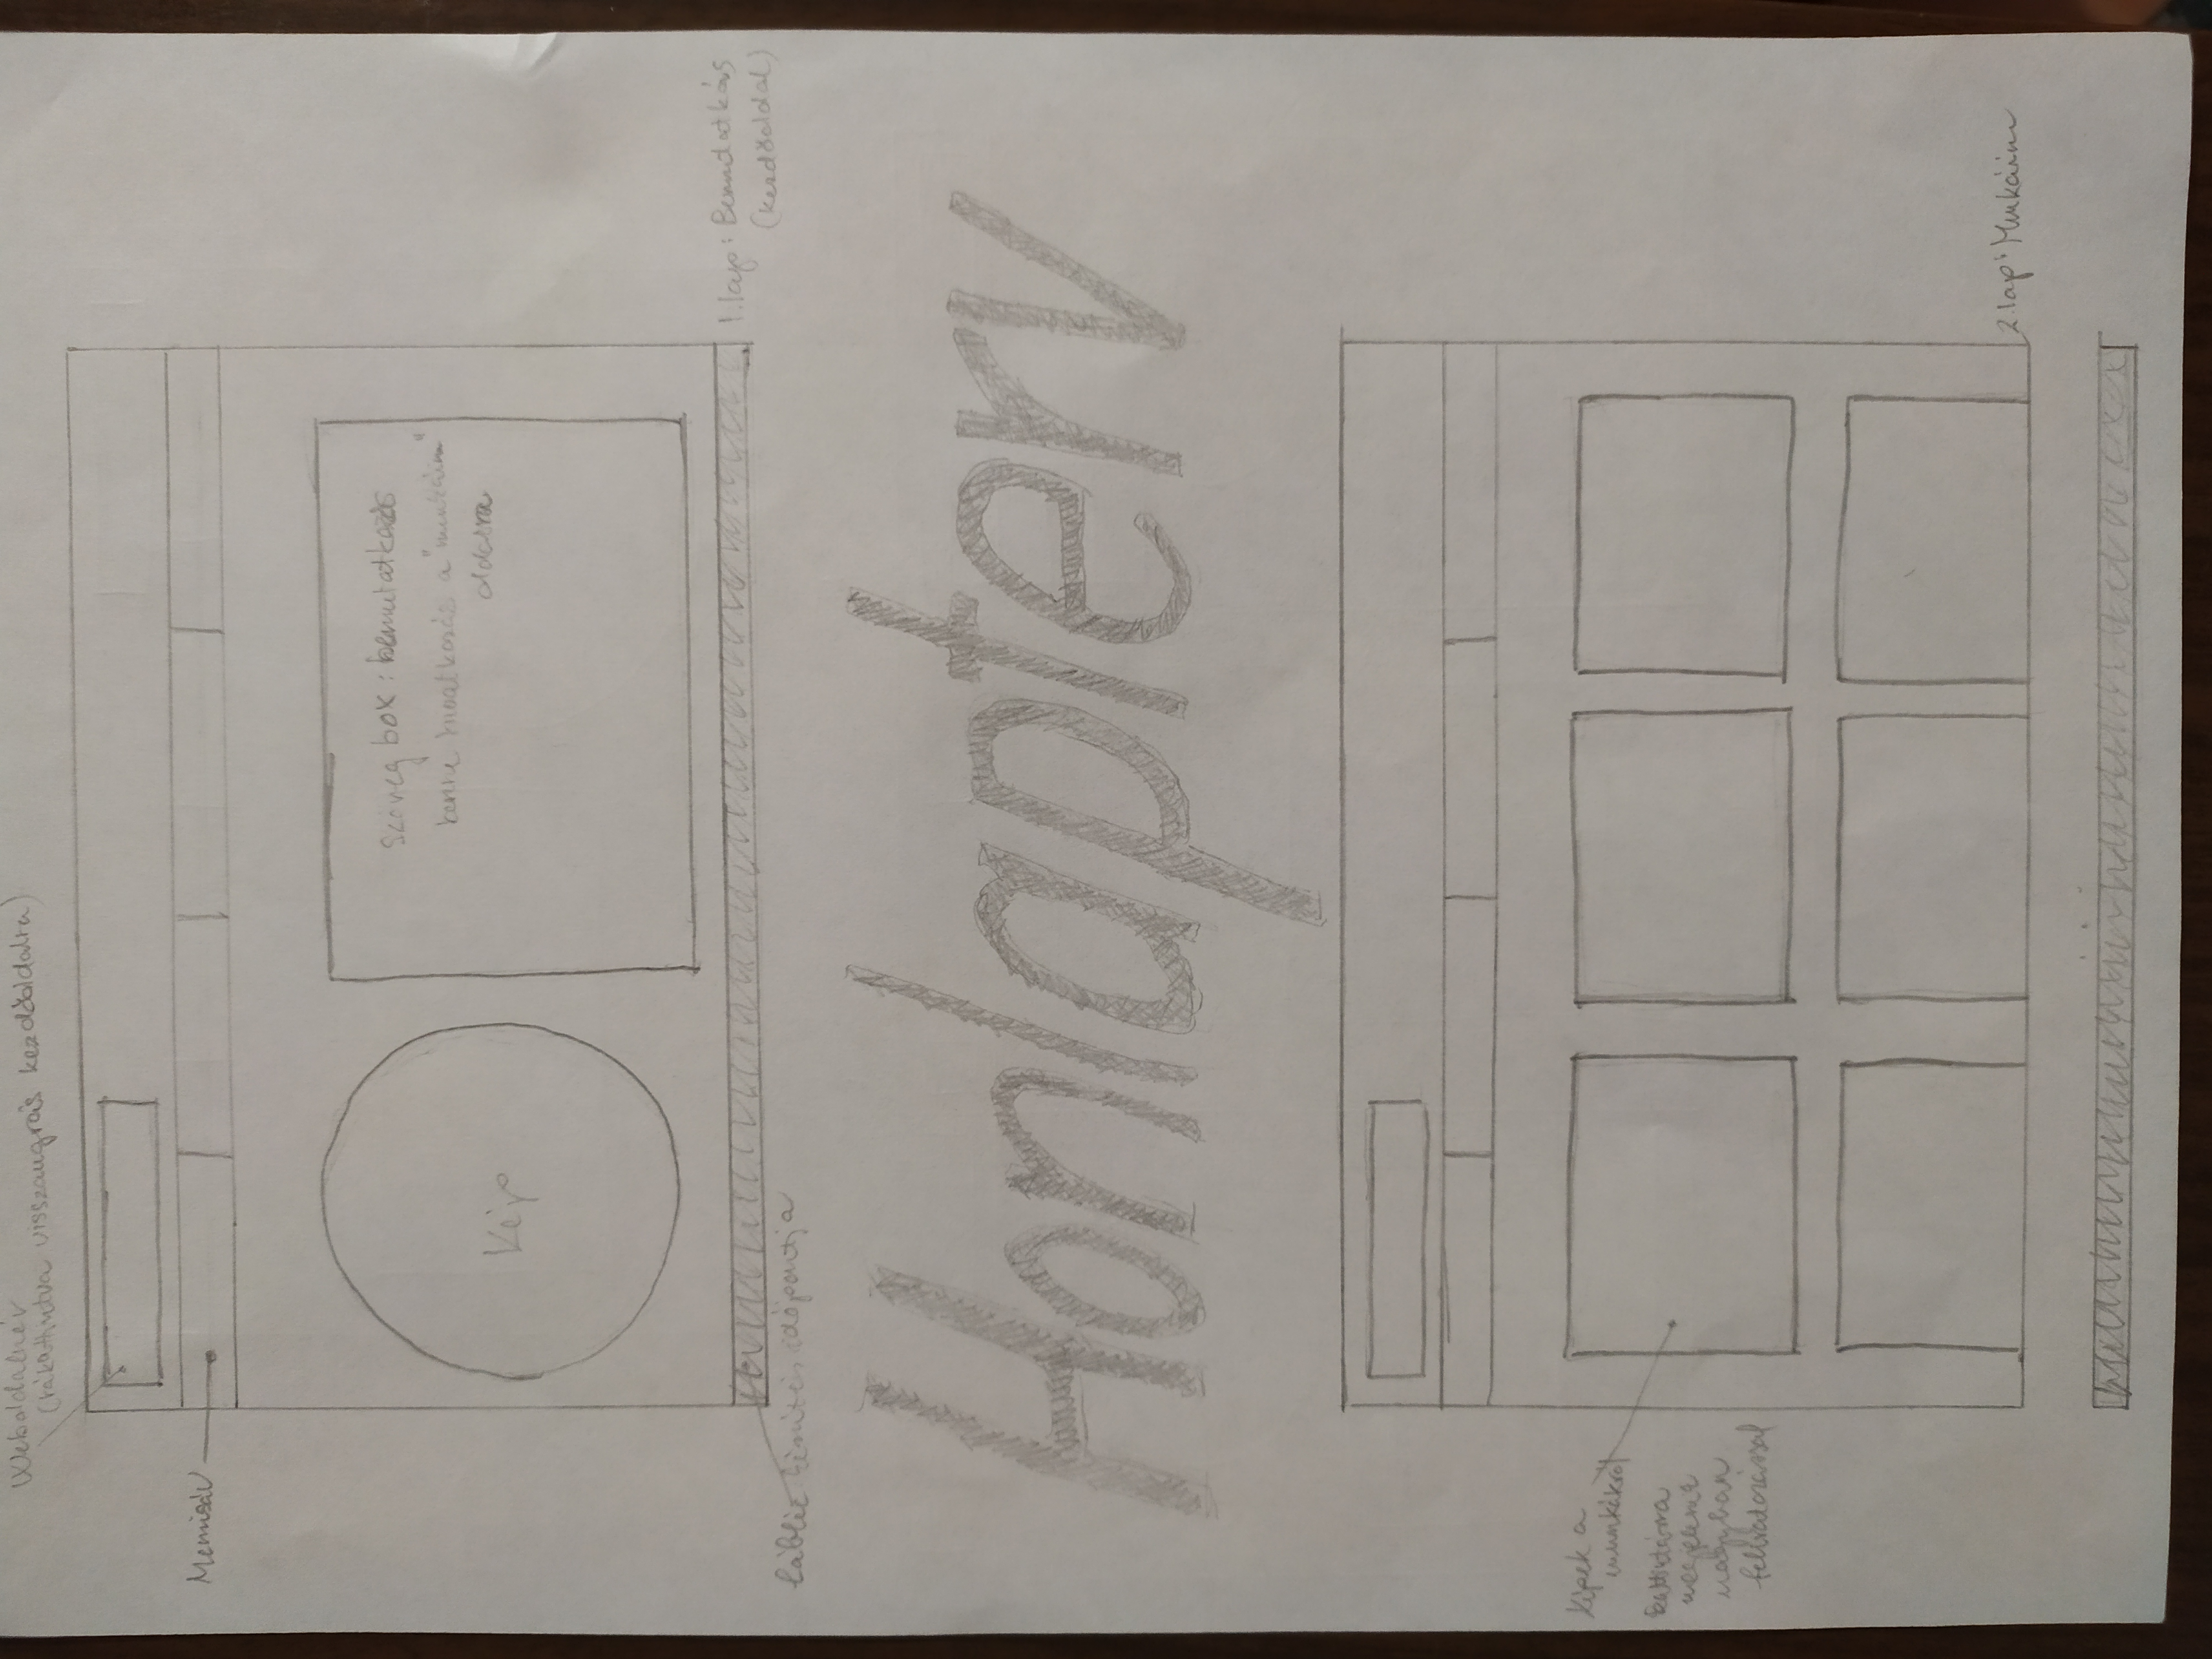 Weboldalnév
(rákattintva visszaugrás kezdőoldalra)
Menüsáv
Szöveg box: bemutatkozás
benne hivatkozás a "munkáim"
oldalra
Kép
1.lap: Bemutatkozás
(kezdőoldal)
lábléc készítés időpontja
Honlapterv
Képek a
munkákról
kattintásra
megjelenik
nagyban
felsorolással
2.lap: Munkáim